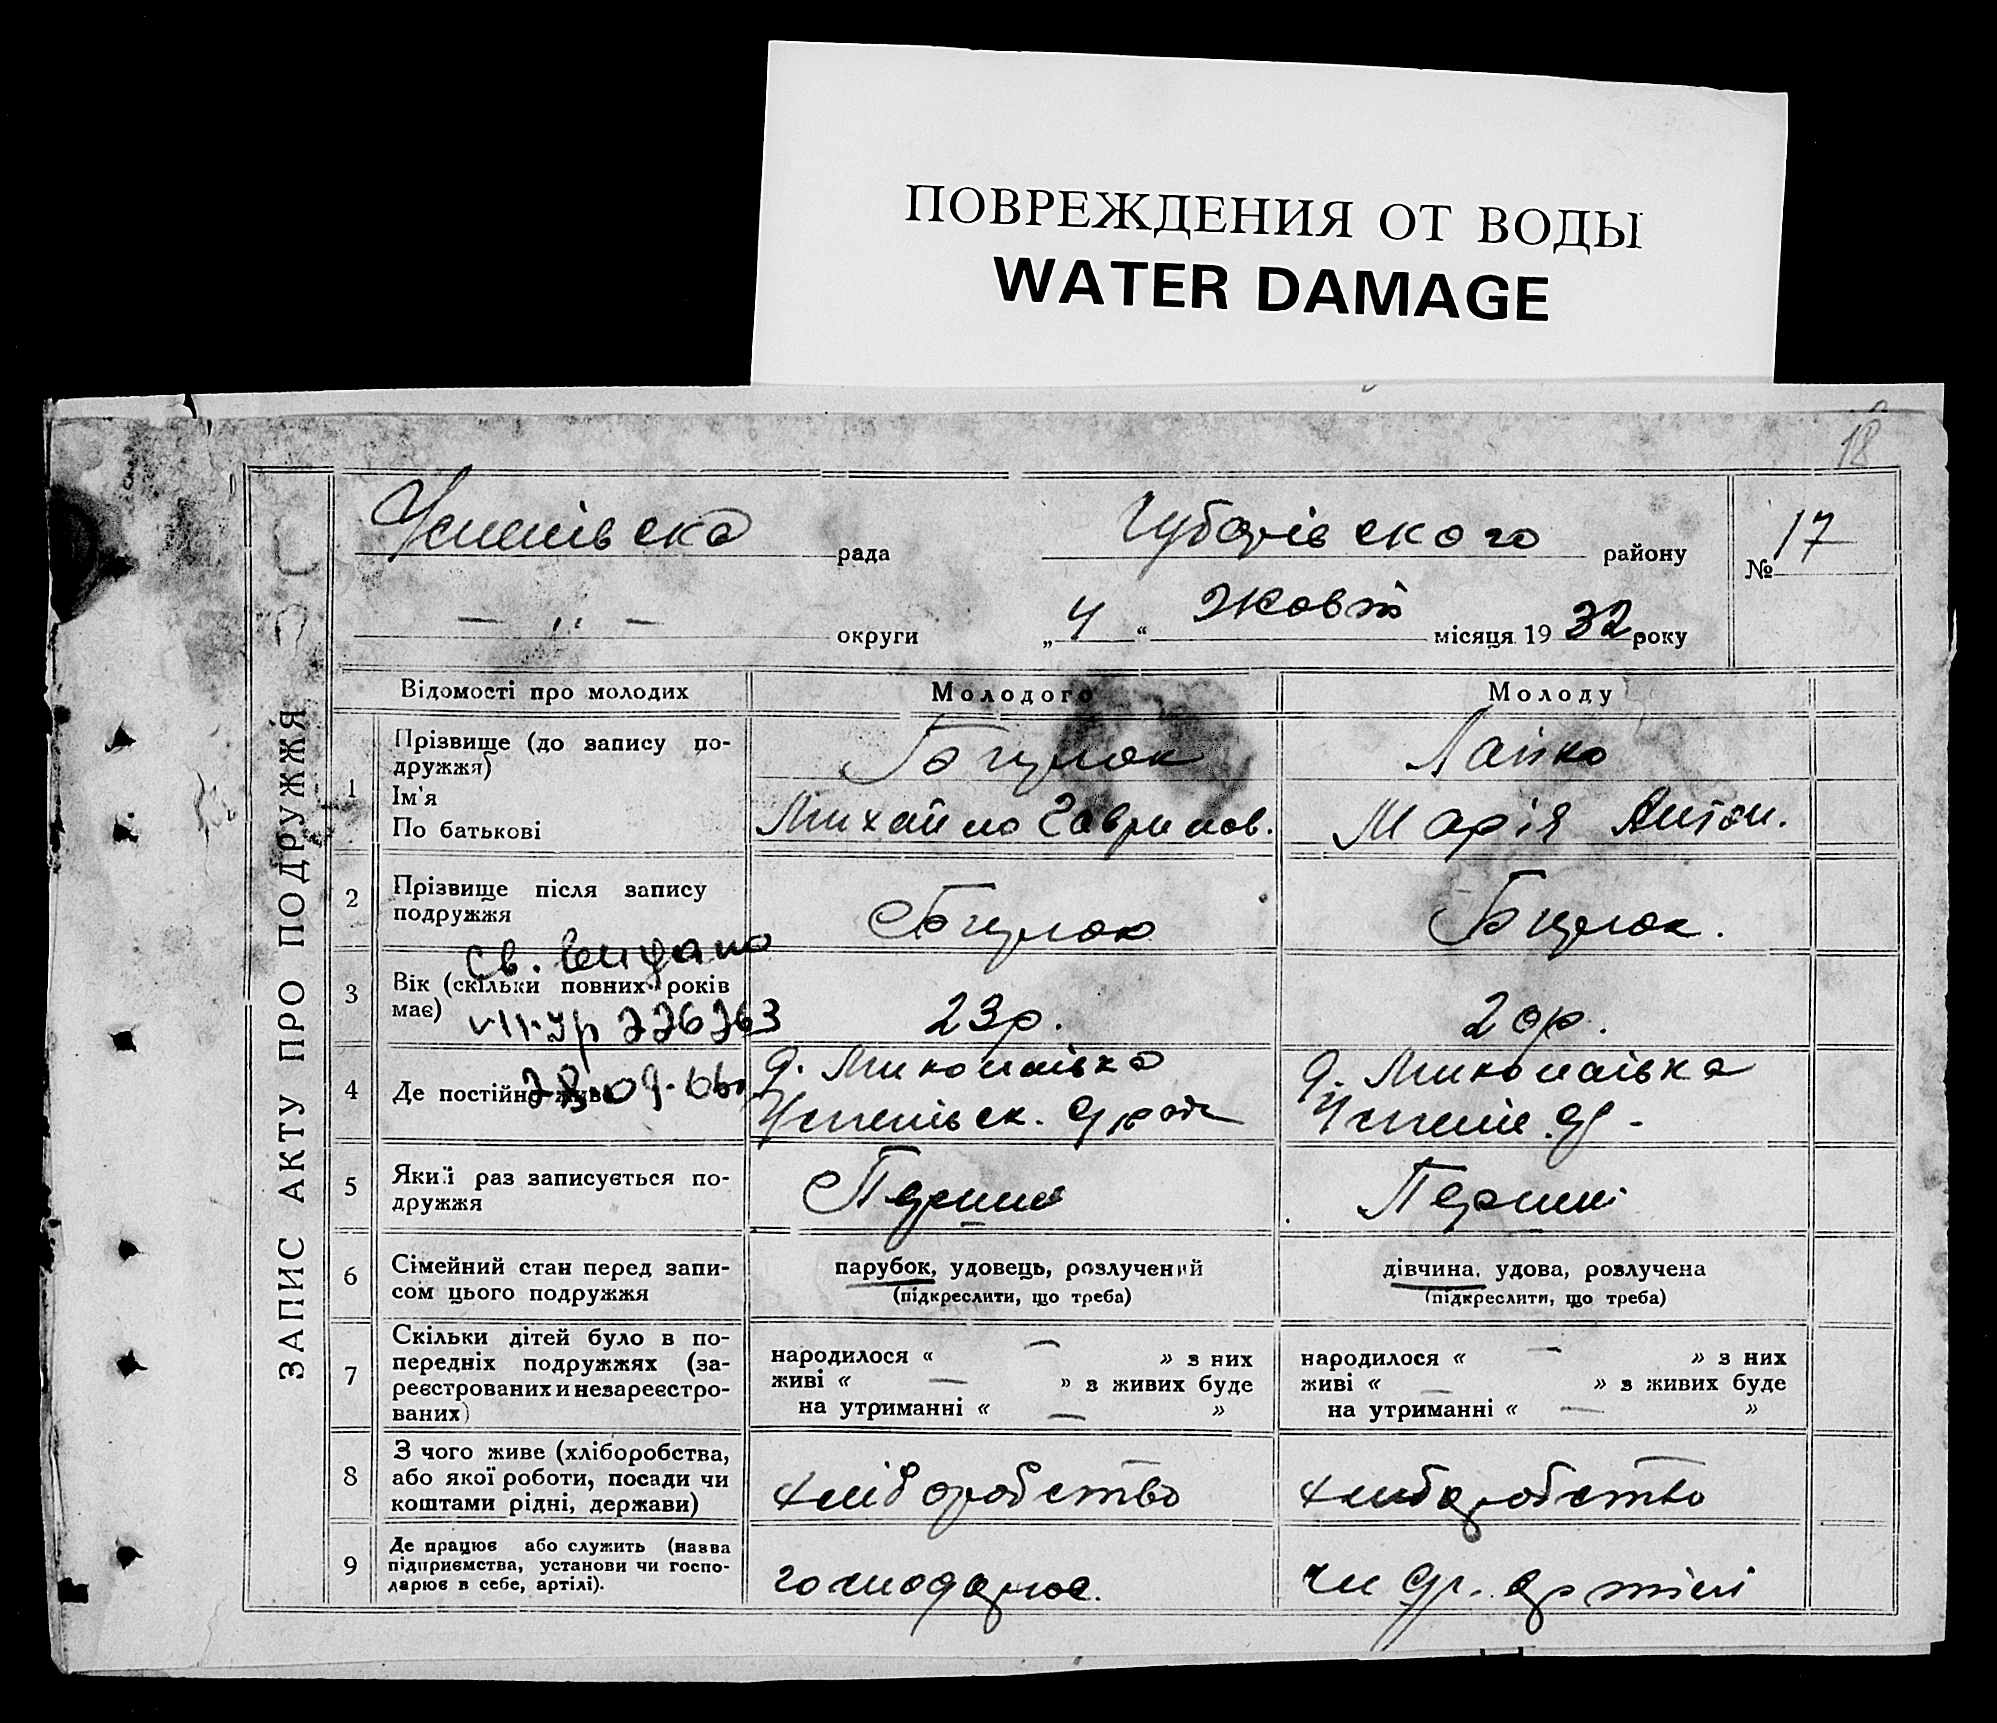 ПОВРЕЖДЕНИЯ ОТ ВОДЫ
WATER DAMAGE
18
ЗАПИС АКТУ ПРО ПОДРУЖЖЯ
рада
Губарівського району
№ 17
— „ —
округи
„ 4 “ Жовт місяця 1932 року
Відомості про молодих
Молодого
Молоду
1
Прізвище (до запису по-
дружжя)
Ім'я
По батькові
Лайко
Михайло Гаврилов.
Марія Антон.
2
Прізвище після запису
подружжя
3
Вік (скільки повних років
має)
Св. видано
226263
23р.
20р.
4
Де постійно живе
28.09.66
д. Миколаївка
д. Миколаївка
5
Який раз записується по-
дружжя
Перший
Перший
6
Сімейний стан перед запи-
сом цього подружжя
парубок, удовець, розлучений
(підкреслити, що треба)
дівчина, удова, розлучена
(підкреслити, що треба)
7
Скільки дітей було в по-
передніх подружжях (за-
реєстрованих и незареєстро-
ваних)
народилося « — » з них
живі « — » з живих буде
на утриманні « — »
народилося « — » з них
живі « — » з живих буде
на утриманні « — »
8
З чого живе (хліборобства,
або якої роботи, посади чи
коштами рідні, держави)
хліборобство
хліборобство
9
Де працює або служить (назва
підприємства, установи чи госпо-
дарює в себе, артілі).
господарює.
артілі